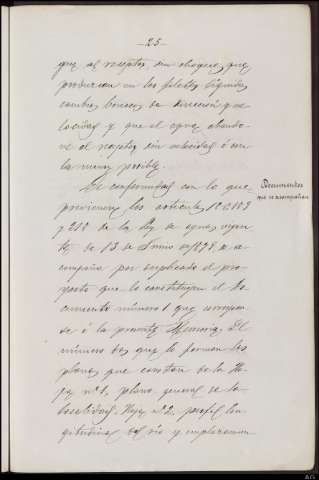 —25—
que al receptor, sin choques, que
produzcan en los filetes líquidos
cambios bruscos de dirección y ve
locidad y que el agua abando
ne el receptor sin velocidad ó con
la menor posible.
De conformidad con lo que
previenen los artículos
y 218 de la Ley de aguas vigen
te, de 13 de Junio de 1879, se a-
compaña por duplicado el pro-
yecto que lo constituyen el do
cumento número 1 que correspon
de á la presente Memoria. El
número dos que lo forman los
planos que constan de la Ho
ja nº 1, plano general de la
localidad; Hoja nº 2, perfil lon
gitudinal del río y emplazamien
Documentos
que se acompañan